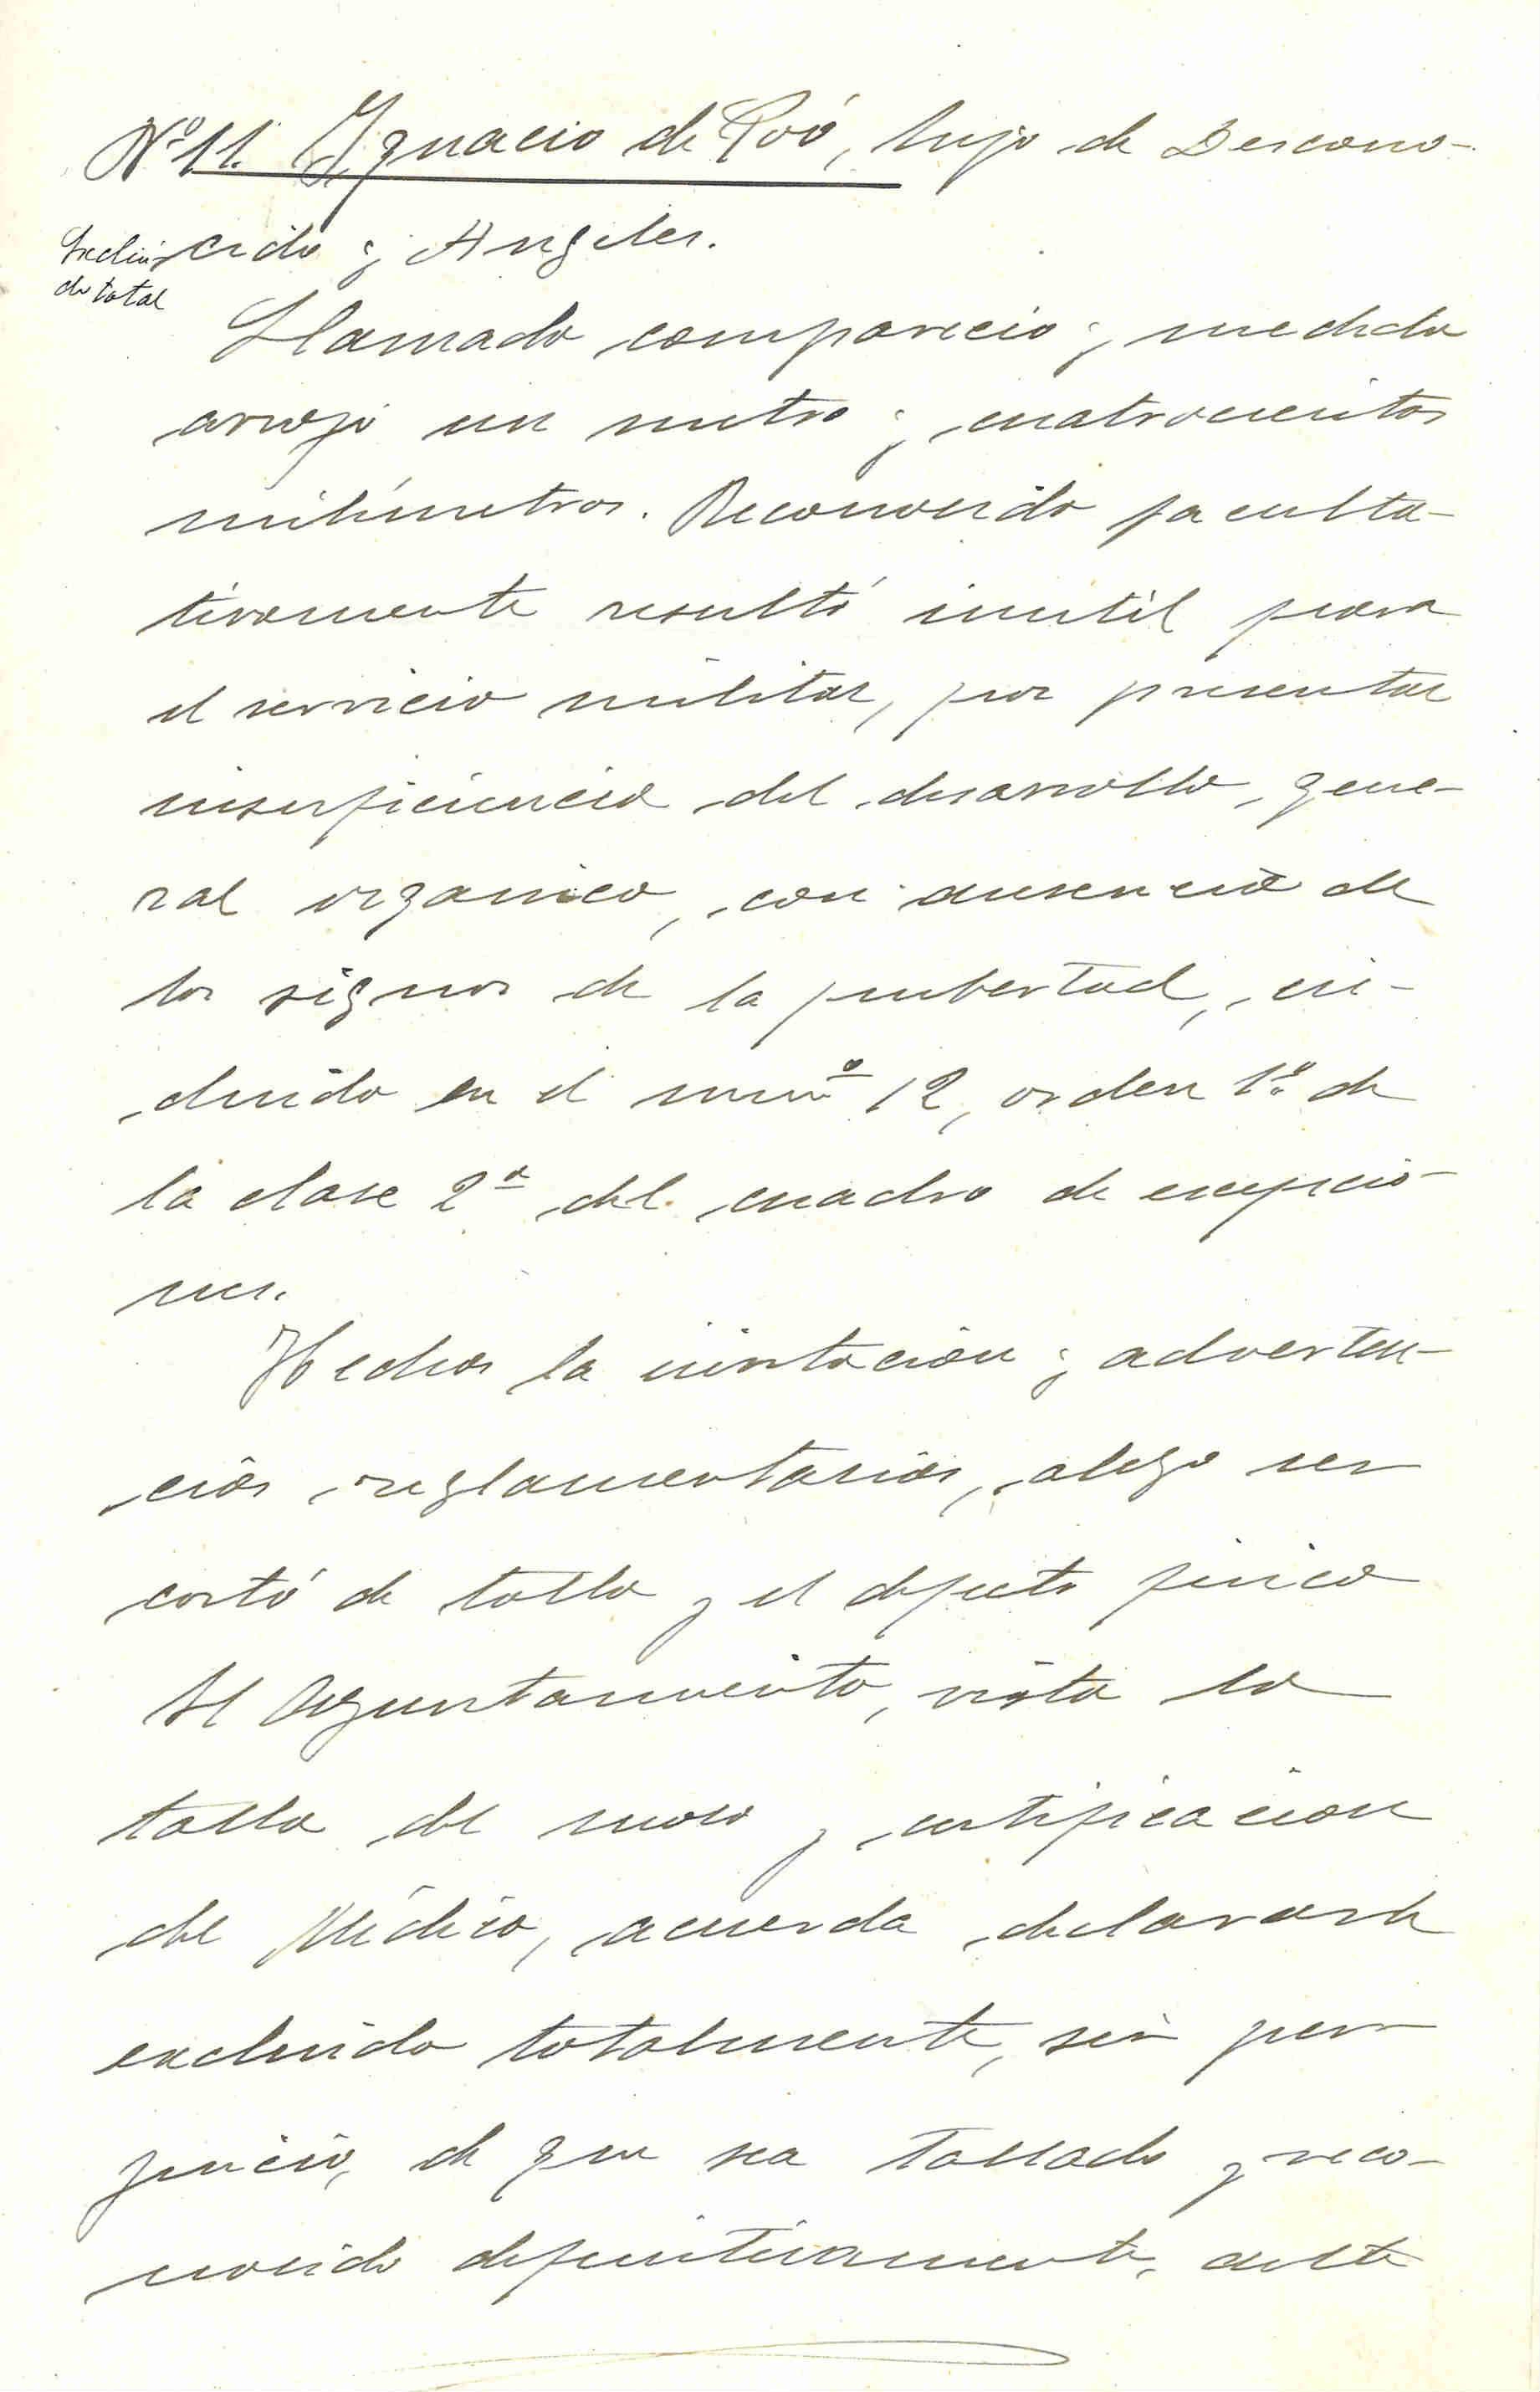 Nº 11. Ygnacio de Roó, hijo de Descono-
cido y Angeles.
Excluí
do total
Llamado compareció y medido
arrojó un metro y cuatrocientos
milímetros. Reconocido faculta-
tivamente resultó inutil para
el servicio militar, por presentar
insuficiencia del desarrollo, gene-
ral organico, con ausencia de
los signos de la pubertad, in-
cluido en el numº 12, orden 1º de
la clase 2ª del cuadro de excepcio-
nes.
Hechas la invitación y adverten-
cias reglamentarias, alego ser
cortó de talla y el defecto fisico
El Ayuntamiento, vista la
talla del mozo y certificacion
del Médico, acuerda declararle
excluido totalmente, sin per
juicio, de que sea tallado y reco-
nocido definitivamente, ante